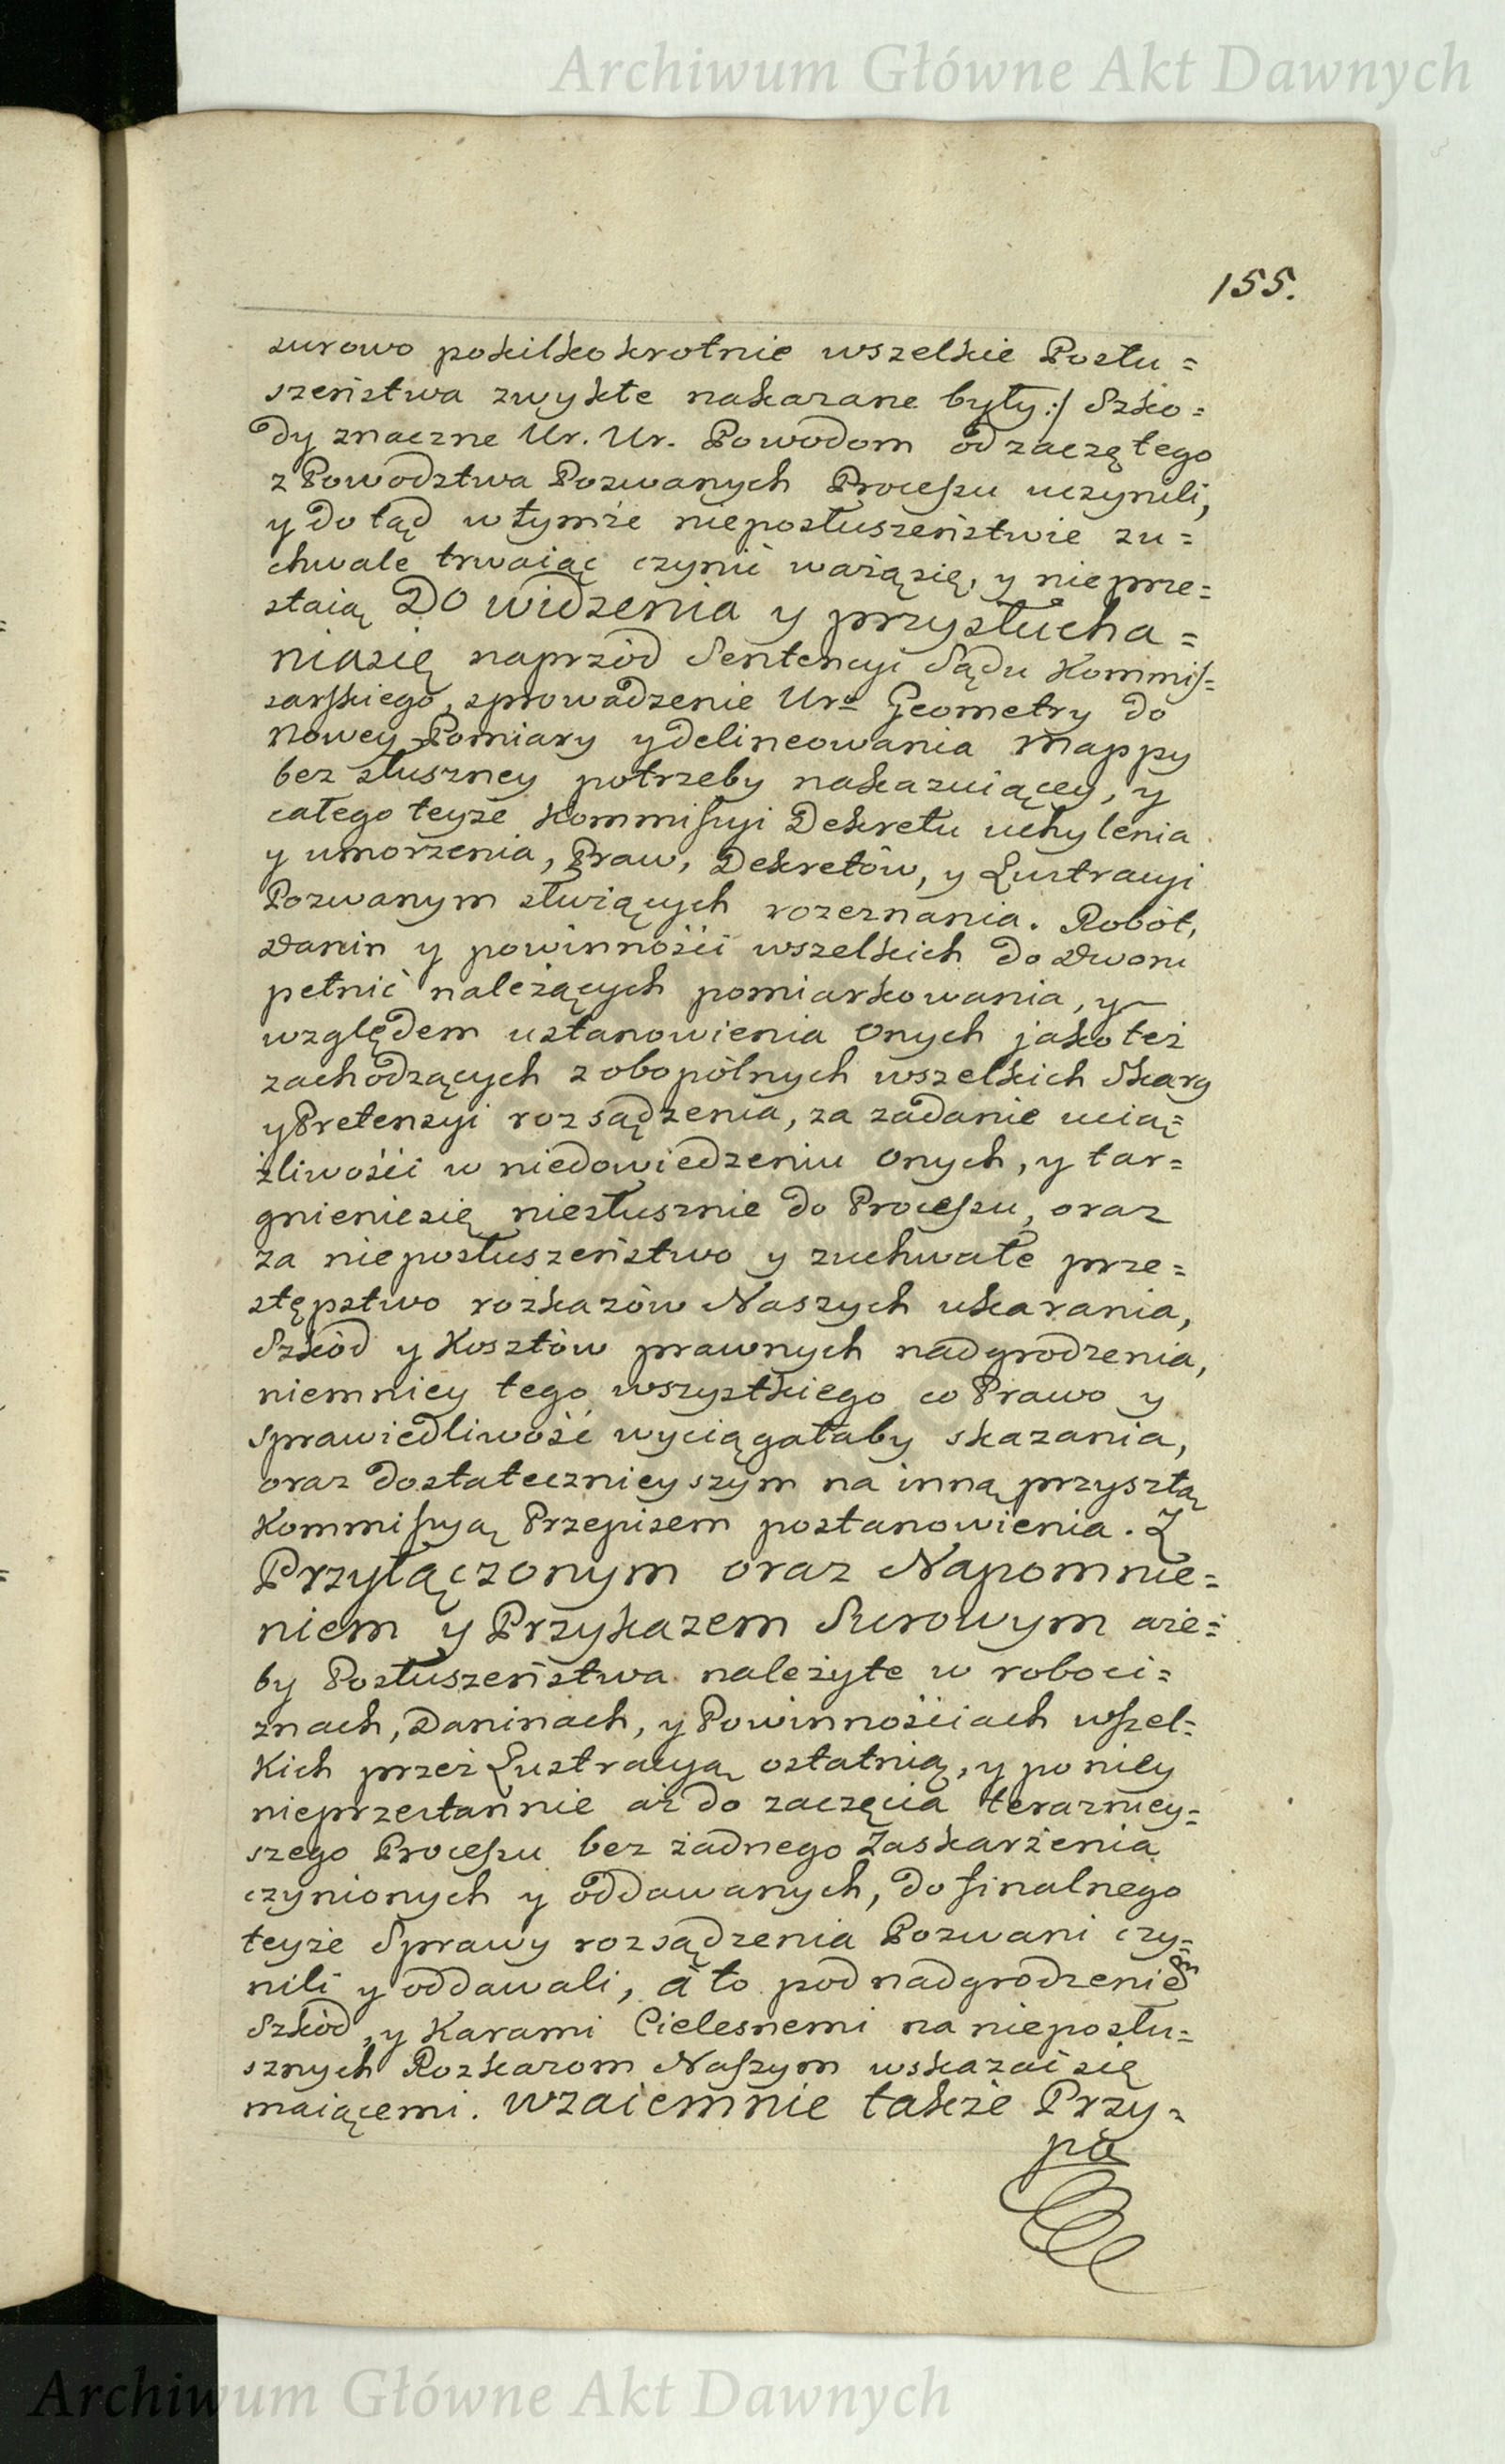 Archiwum Główne Akt Dawnych
155.
surowo pokilkokrotnie wszelkie Posłu=
szeństwa zwykłe nakazane były:/ Szko=
dy znaczne Ur. Ur. Powodom od zaczętego
z Powodztwa Pozwanych Processu uczynili,
y do tąd w tymże nieposłuszeństwie zu=
chwale trwaiąc czynić ważą się, y nieprze=
staią DO widzenia y przysłucha=
niasię naprzód Sentencyi Sądu Kommis=
sarskiego, sprowadzenie Uro Geometry do
Nowey Pomiary y delineowania Mappy
bez słuszney potrzeby nakazuiącey, y
całego teyże Kommissyi Dekretu uchylenia
y umorzenia, Praw, Dekretów, y Lustracyi
Pozwanym służących rozeznania. Robót,
Danin y powinności wszelkich do Dworu
pełnić należących pomiarkowania, y
względem ustanowienia Onych jako też
zachodzących z obopólnych wszelkich Skarg
y Pretensyi rozsądzenia, za zadanie ucią=
żliwości w niedowiedzeniu Onych, y tar=
gnieniesię niesłusznie do Processu, oraz
za nieposłuszeństwo y zuchwałe prze=
stępstwo rozkazów Naszych ukarania,
Szkód y Kosztów prawnych nadgrodzenia,
niemniey tego wszystkiego co Prawo y
sprawiedliwość wyciągałaby skazania,
oraz dostatecznieyszym na inną przyszłą
Kommissyą Przepisem postanowienia. Z
Przyłączonym oraz Napomnie=
niem y Przykazem Surowym aże=
by Posłuszeństwa należyte w roboci=
znach, Daninach, y Powinnościach wszel=
kich przez Lustracyą ostatnią, y po niey
nieprzestannie aż do zaczęcia terazniey=
szego Processu bez żadnego Zaskarżenia
czynionych y oddawanych, do finalnego
teyże Sprawy rozsądzenia Pozwani czy=
nili y oddawali, a to pod nadgrodzeniem
Szkód, y Karami Cielesnemi na nieposłu=
sznych Rozkazom Naszym wskazać się
maiącemi. Wzaiemnie także Przy=
po
Archiwum Główne Akt Dawnych